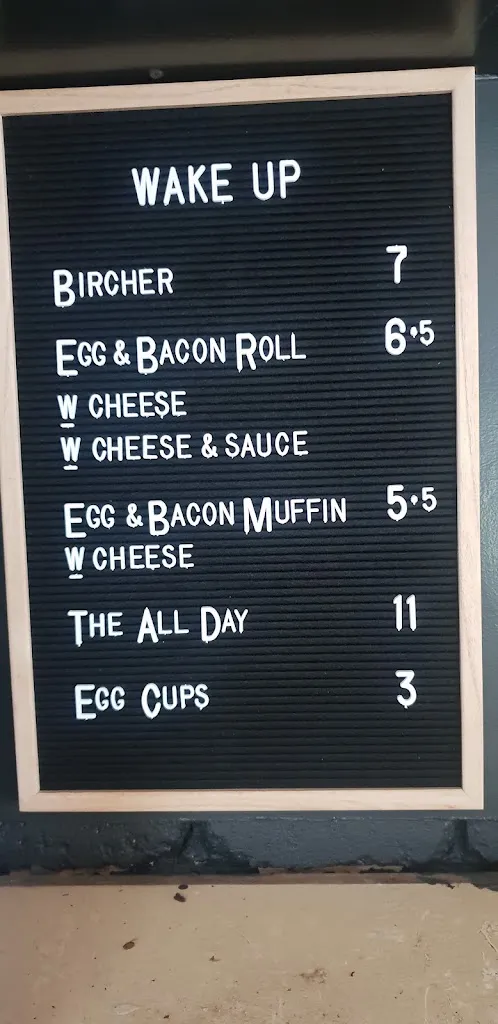 WAKE UP
BIRCHER 7
EGG & BACON ROLL 6.5
W CHEESE
W CHEESE & SAUCE
EGG & BACON MUFFIN 5.5
W CHEESE
THE ALL DAY 11
EGG CUPS 3